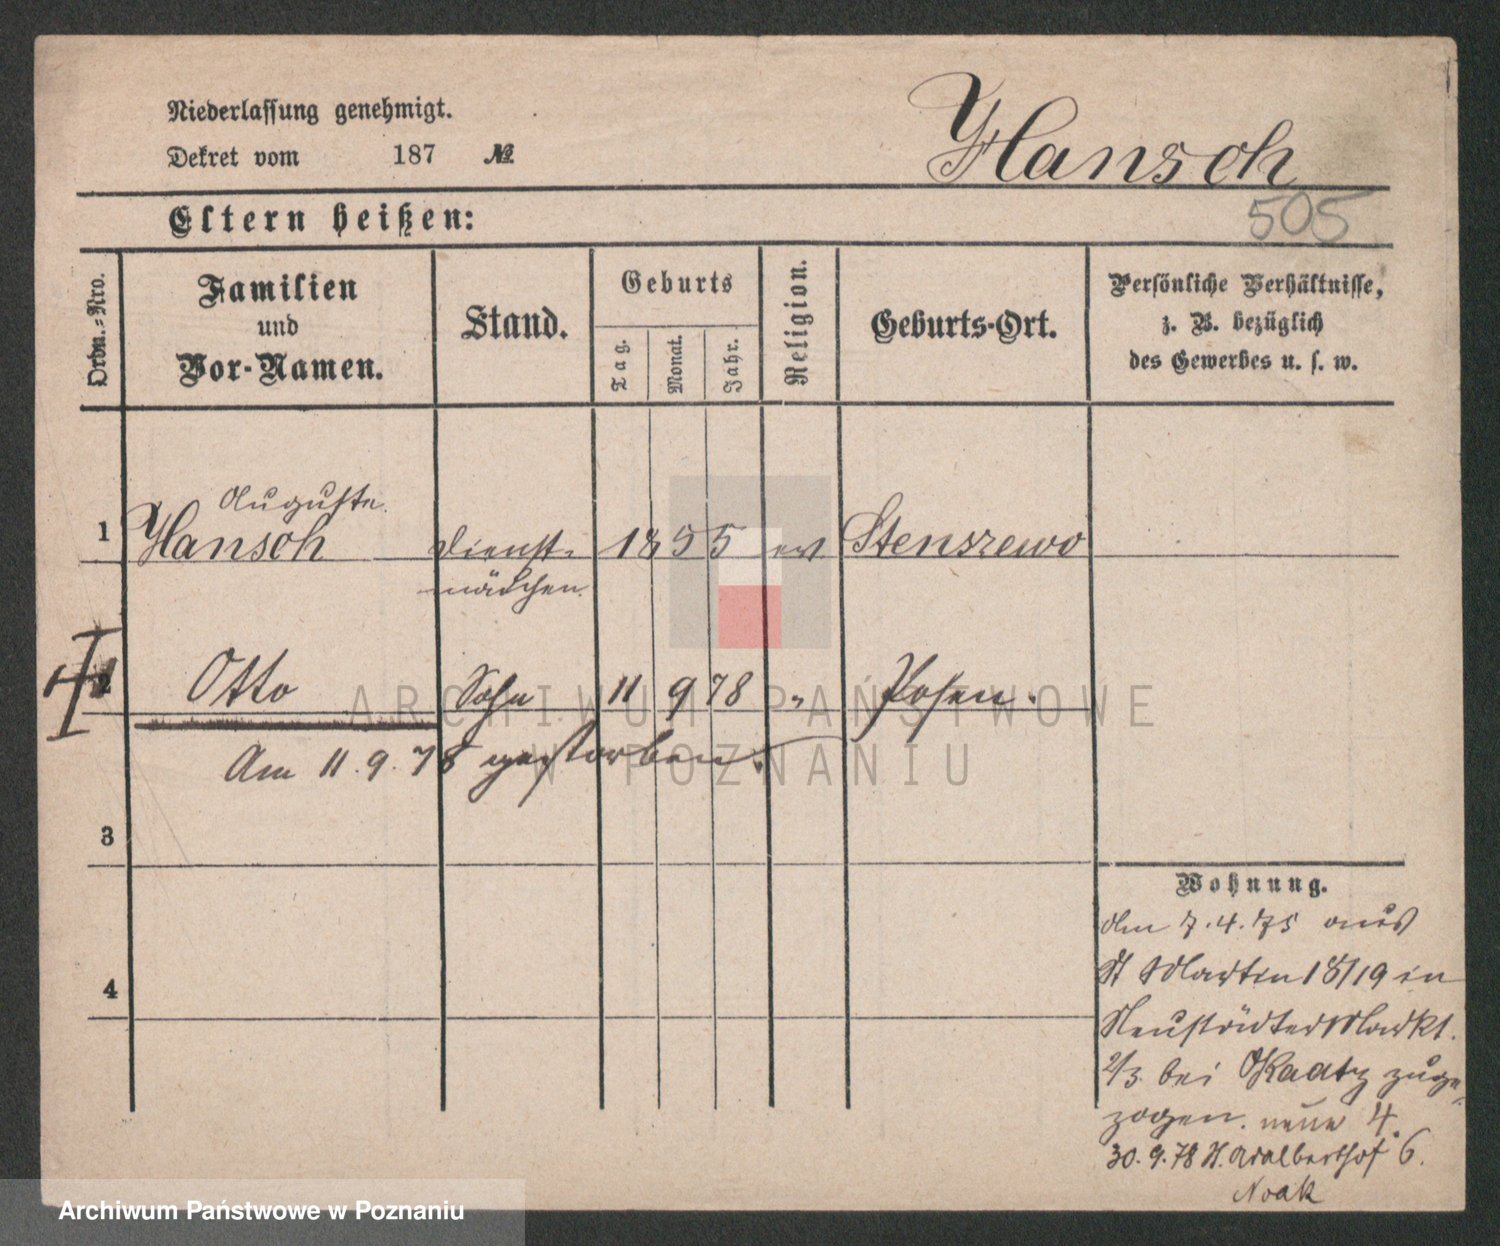 Niederlassung genehmigt.
Dekret vom 187 №
Hansch
505
Eltern heißen:
Ordn.-Nro.
Familien
und
Vor-Namen.
Stand.
Geburts
Tag.
Monat.
Jahr.
Religion.
Geburts-Ort.
Persönliche Verhältnisse,
z. B. bezüglich
des Gewerbes u. s. w.
Auguste
1 Hansch Dienst- 1855 ev Stenszewo
mädchen.
2 Otto Sohn 11 9 78 " Posen.
Am 11.9.78 gestorben.
3
4
Wohnung.
Am 7.4.75 aus
St Martin 18/19 in
Neustädter Markt.
2/3 bei Kaatz zuge-
zogen. neue 4.
30.9.78 St. Adalberthof 6.
Noak
ARCHIWUM PAŃSTWOWE
W POZNANIU
Archiwum Państwowe w Poznaniu